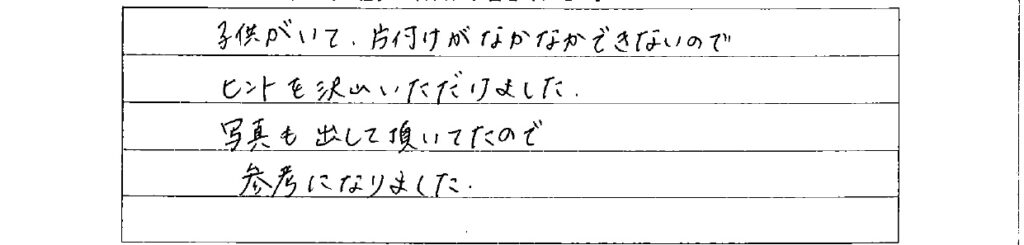 子供がいて、片付けがなかなかできないので
ヒントを沢山いただけました.
写真も出して頂いてたので
参考になりました.